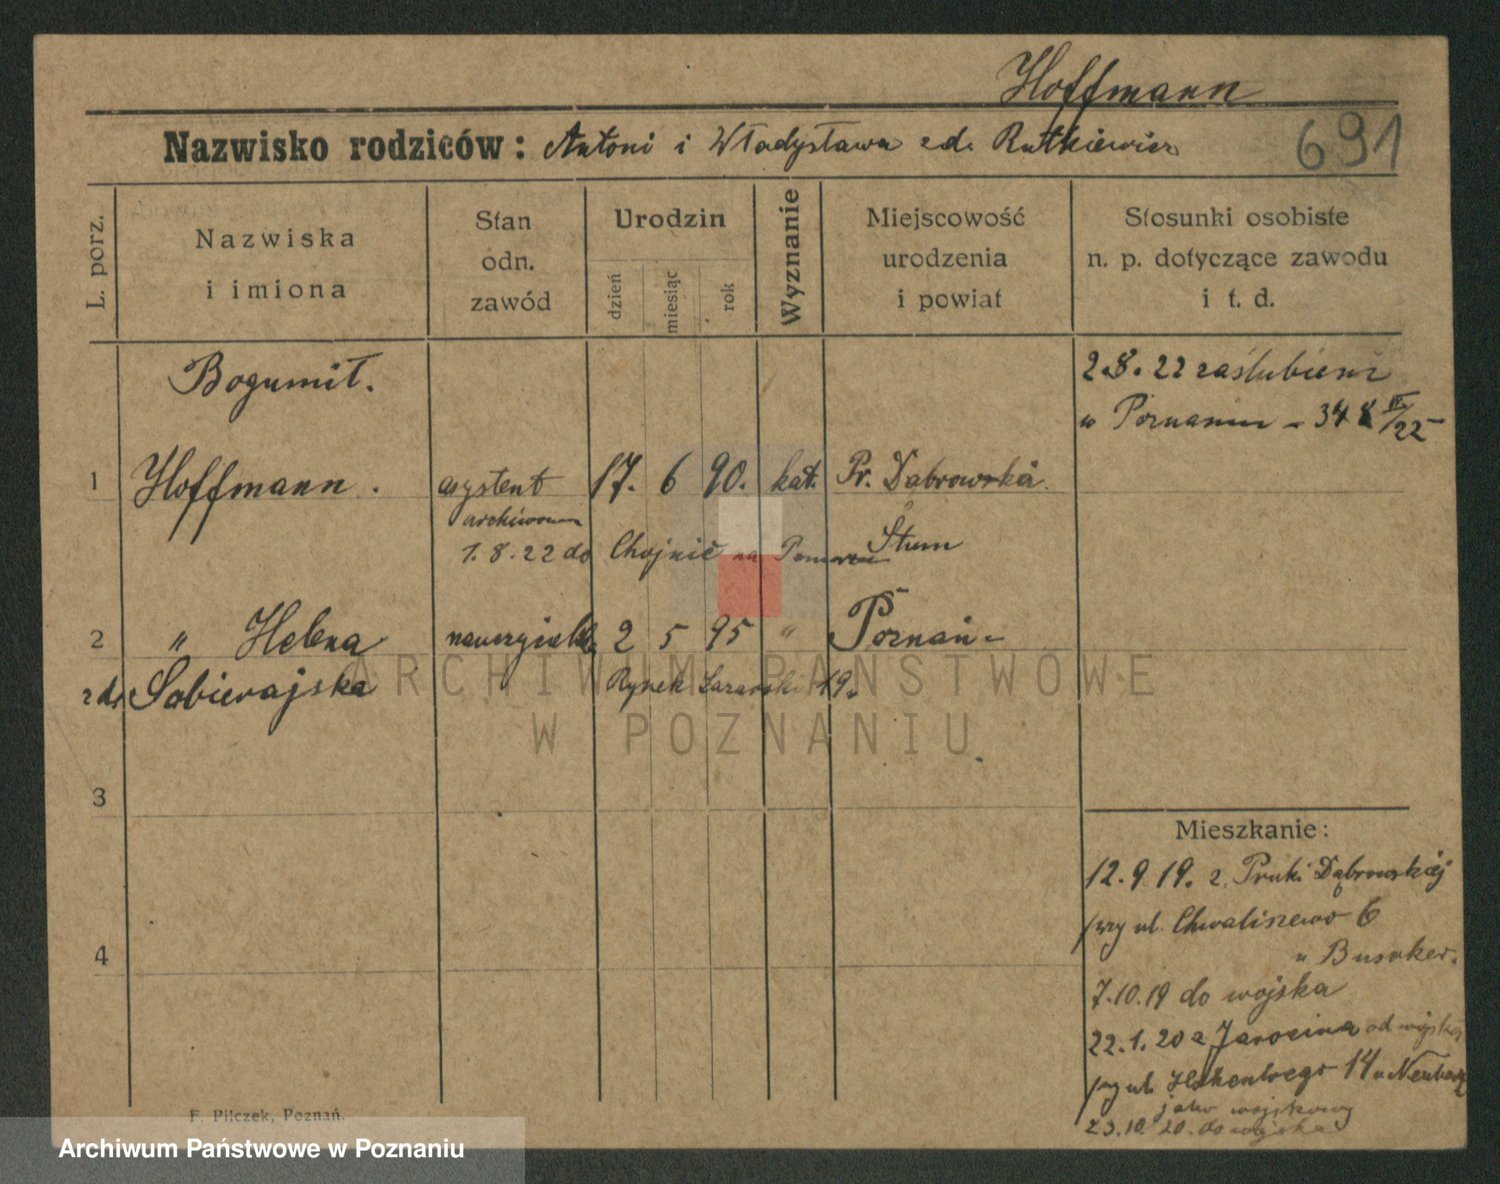 Hoffmann
Nazwisko rodziców: Antoni i Władysława zd. Rutkiewicz
691
L. porz.
Nazwiska
i imiona
Stan
odn.
zawód
Urodzin
dzień
miesiąc
rok
Wyznanie
Miejscowość
urodzenia
i powiat
Stosunki osobiste
n. p. dotyczące zawodu
i t. d.
Bogumił.
2.8.22 zaślubieni
w Poznaniu - 348 /22
1 Hoffmann. asystent 17. 6 90. kat. Pr. Dąbrowska
archiwum
1.8.22 do Chojnic na Pomorzu Sztum
2 " Helena 2 5 95 " Poznań
zd. Sobierajska Rynek Łazarski 19.
3
4
Mieszkanie:
12.9 19. z Pruki Dąbrowskiej
przy ul. Chwaliszewo 6
7.10.19 do wojska
22.1.20 z Jarocina od wojska
przy ul. 14
jako wojskowy
23.10.20. do wojska
F. Pilczek, Poznań.
ARCHIWUM PAŃSTWOWE
W POZNANIU
Archiwum Państwowe w Poznaniu